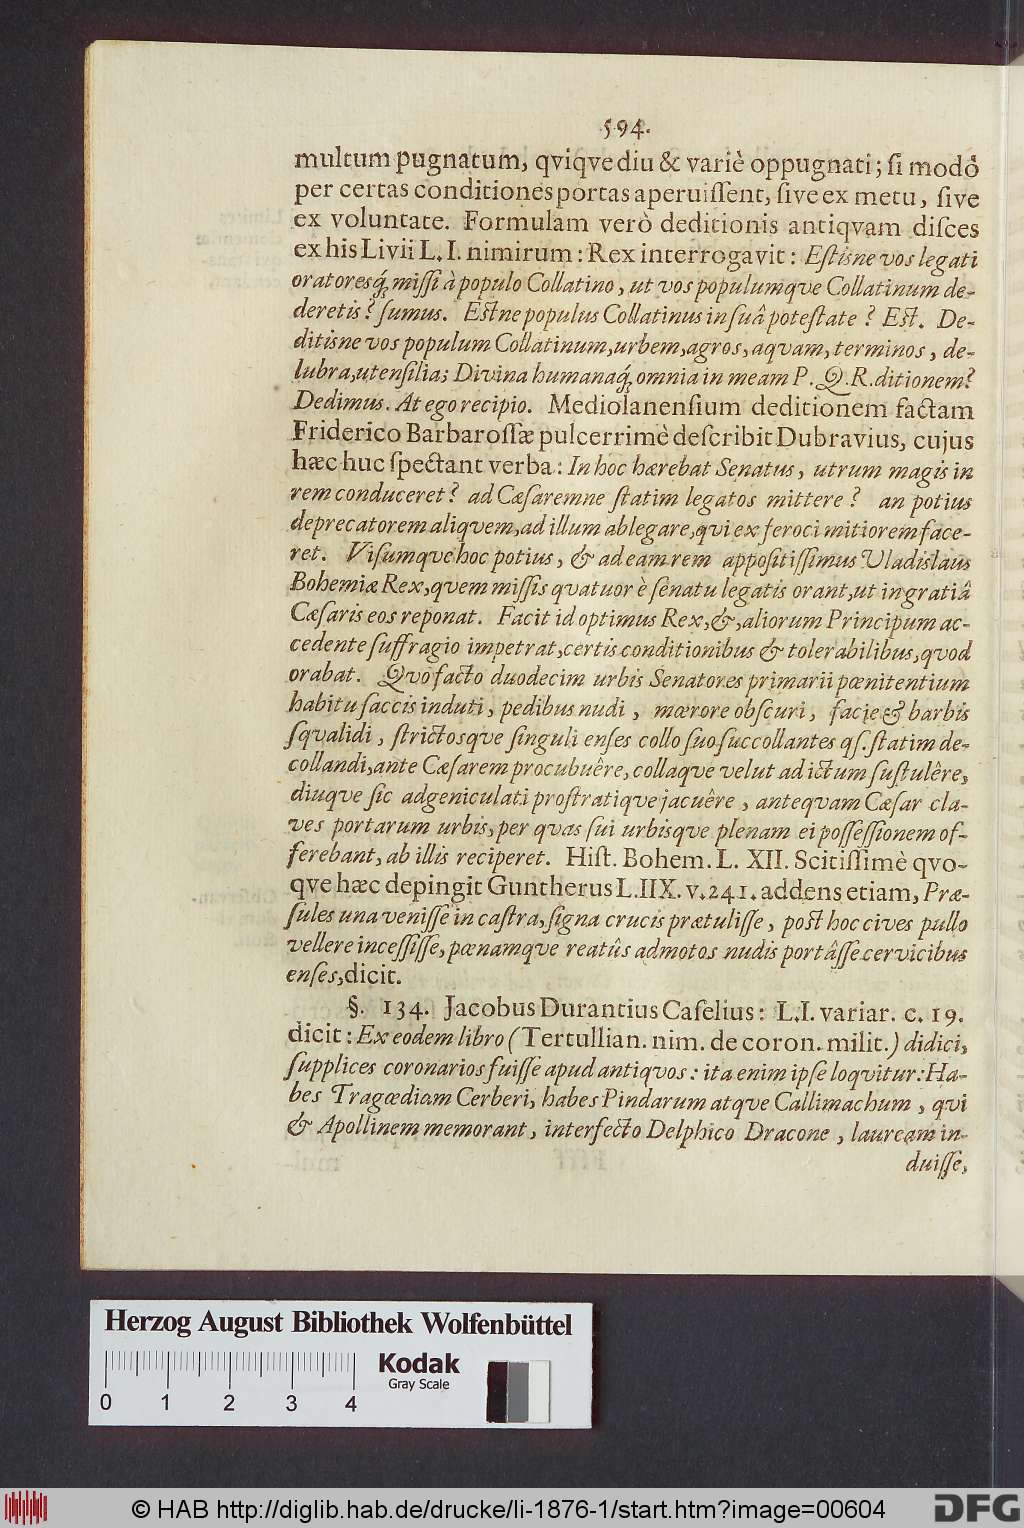 594.
multum pugnatum, qviqve diu & variè oppugnati; ſi modò
per certas conditiones portas aperuiſſent, ſive ex metu, ſive
ex voluntate. Formulam verò deditionis antiqvam diſces
ex his Livii L. I. nimirum: Rex interrogavit: Eſtisne vos legati
oratoresq́; miſſi à populo Collatino, ut vos populumqve Collatinum de-
deretis? ſumus. Eſtne populus Collatinus in ſuâ poteſtate? Eſt. De-
ditisne vos populum Collatinum, urbem, agros, aqvam, terminos, de-
lubra, utenſilia; Divina humanaq́; omnia in meam P. Q. R. ditionem?
Dedimus. At ego recipio. Mediolanenſium deditionem factam
Friderico Barbaroſſæ pulcerrimè deſcribit Dubravius, cujus
hæc huc ſpectant verba: In hoc hærebat Senatus, utrum magis in
rem conduceret? ad Cæſaremne ſtatim legatos mittere? an potius
deprecatorem aliqvem, ad illum ablegare, qvi ex feroci mitiorem face-
ret. Viſumqve hoc potius, & ad eam rem appoſitiſſimus Vladislaus
Bohemiæ Rex, qvem miſſis qvatuor è ſenatu legatis orant, ut in gratiâ
Cæſaris eos reponat. Facit id optimus Rex, &, aliorum Principum ac-
cedente ſuffragio impetrat, certis conditionibus & tolerabilibus, qvod
orabat. Qvo facto duodecim urbis Senatores primarii pœnitentium
habitu ſaccis induti, pedibus nudi, mœrore obſcuri, facie & barbis
ſqvalidi, ſtrictosqve ſinguli enſes collo ſuo ſuccollantes qſ. ſtatim de-
collandi, ante Cæſarem procubuêre, collaqve velut ad ictum ſuſtulêre,
diuqve ſic adgeniculati proſtratiqve jacuêre, anteqvam Cæſar cla-
ves portarum urbis, per qvas ſui urbisqve plenam ei poſſeſſionem of-
ferebant, ab illis reciperet. Hiſt. Bohem. L. XII. Scitiſſimè qvo-
qve hæc depingit Guntherus L. IIX. v. 241. addens etiam, Præ-
ſules una veniſſe in caſtra, ſigna crucis prætuliſſe, poſt hoc cives pullo
vellere inceſſiſſe, pœnamqve reatûs admotos nudis portâſſe cervicibus
enſes, dicit.
§. 134. Jacobus Durantius Caſelius: L. I. variar. c. 19.
dicit: Ex eodem libro (Tertullian. nim. de coron. milit.) didici,
ſupplices coronarios fuiſſe apud antiqvos: ita enim ipſe loqvitur: Ha-
bes Tragœdiam Cerberi, habes Pindarum atqve Callimachum, qvi
& Apollinem memorant, interfecto Delphico Dracone, lauream in-
duiſſe,
Herzog August Bibliothek Wolfenbüttel
Kodak
Gray Scale
0 1 2 3 4
© HAB http://diglib.hab.de/drucke/li-1876-1/start.htm?image=00604
DFG